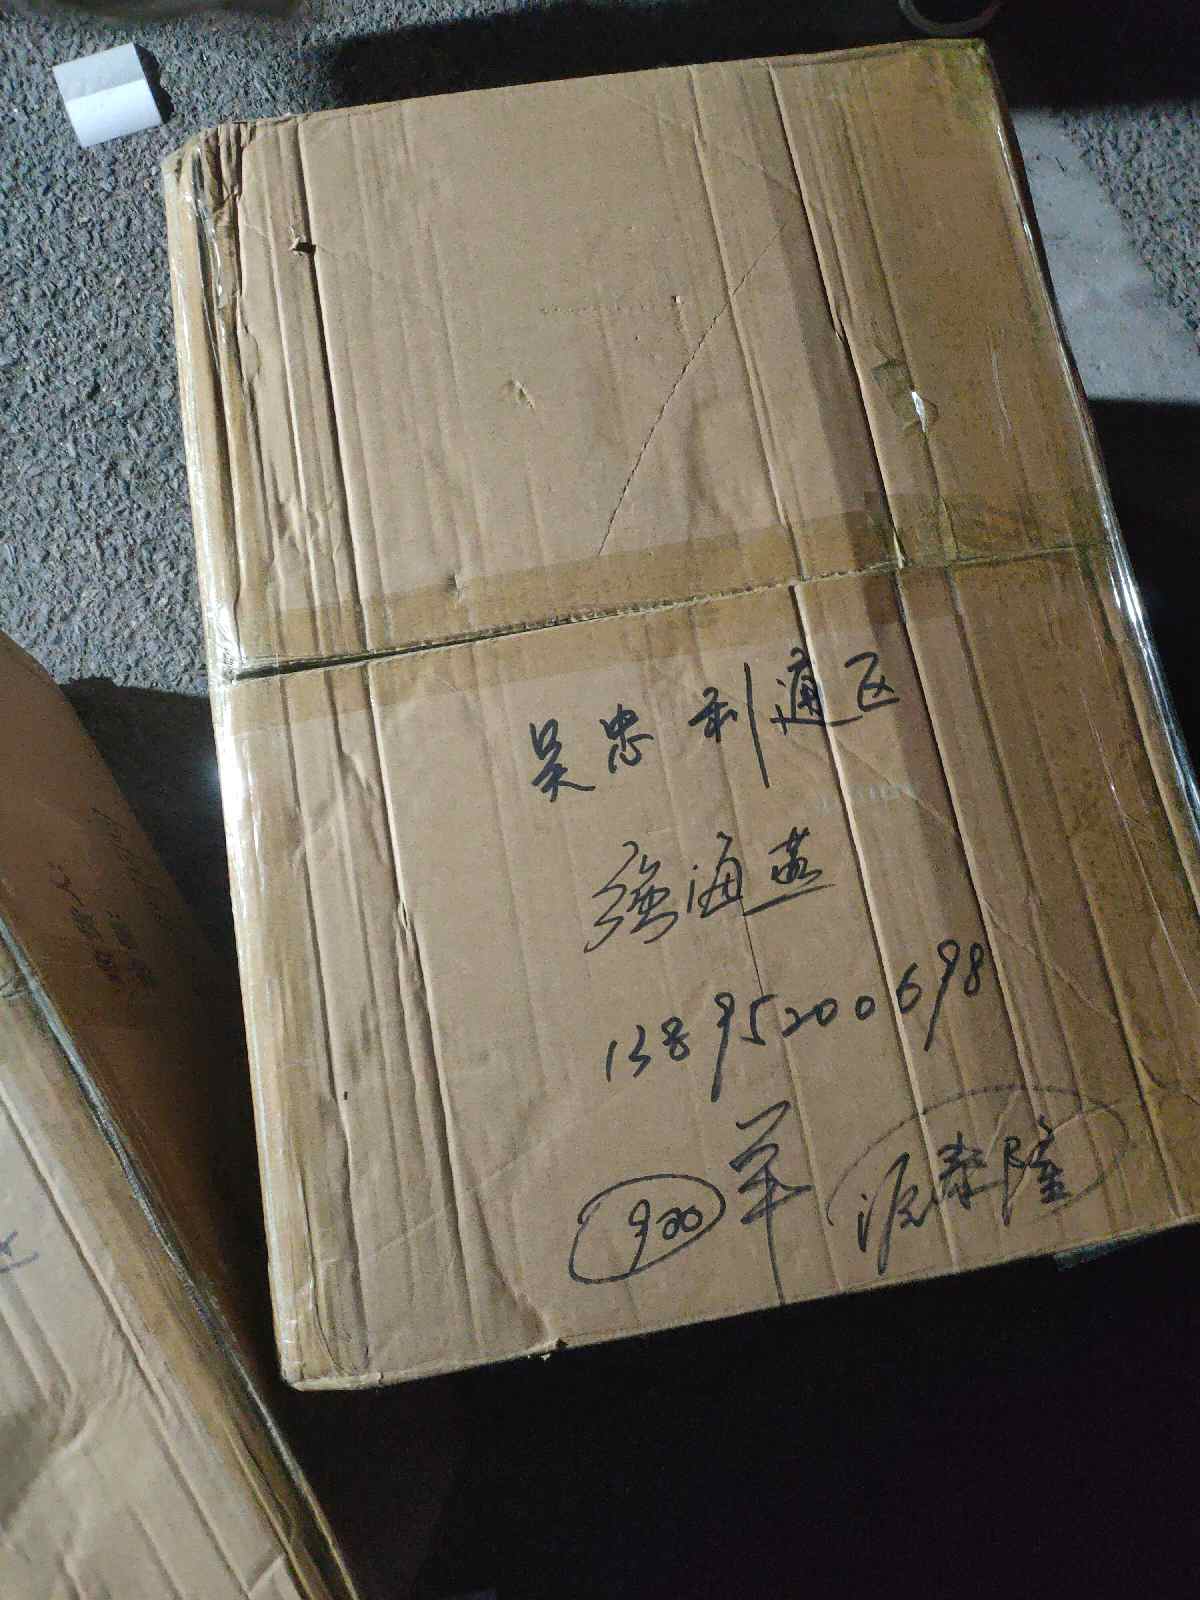 吴忠利通区
强海燕
13895200698
900 单 源泰隆